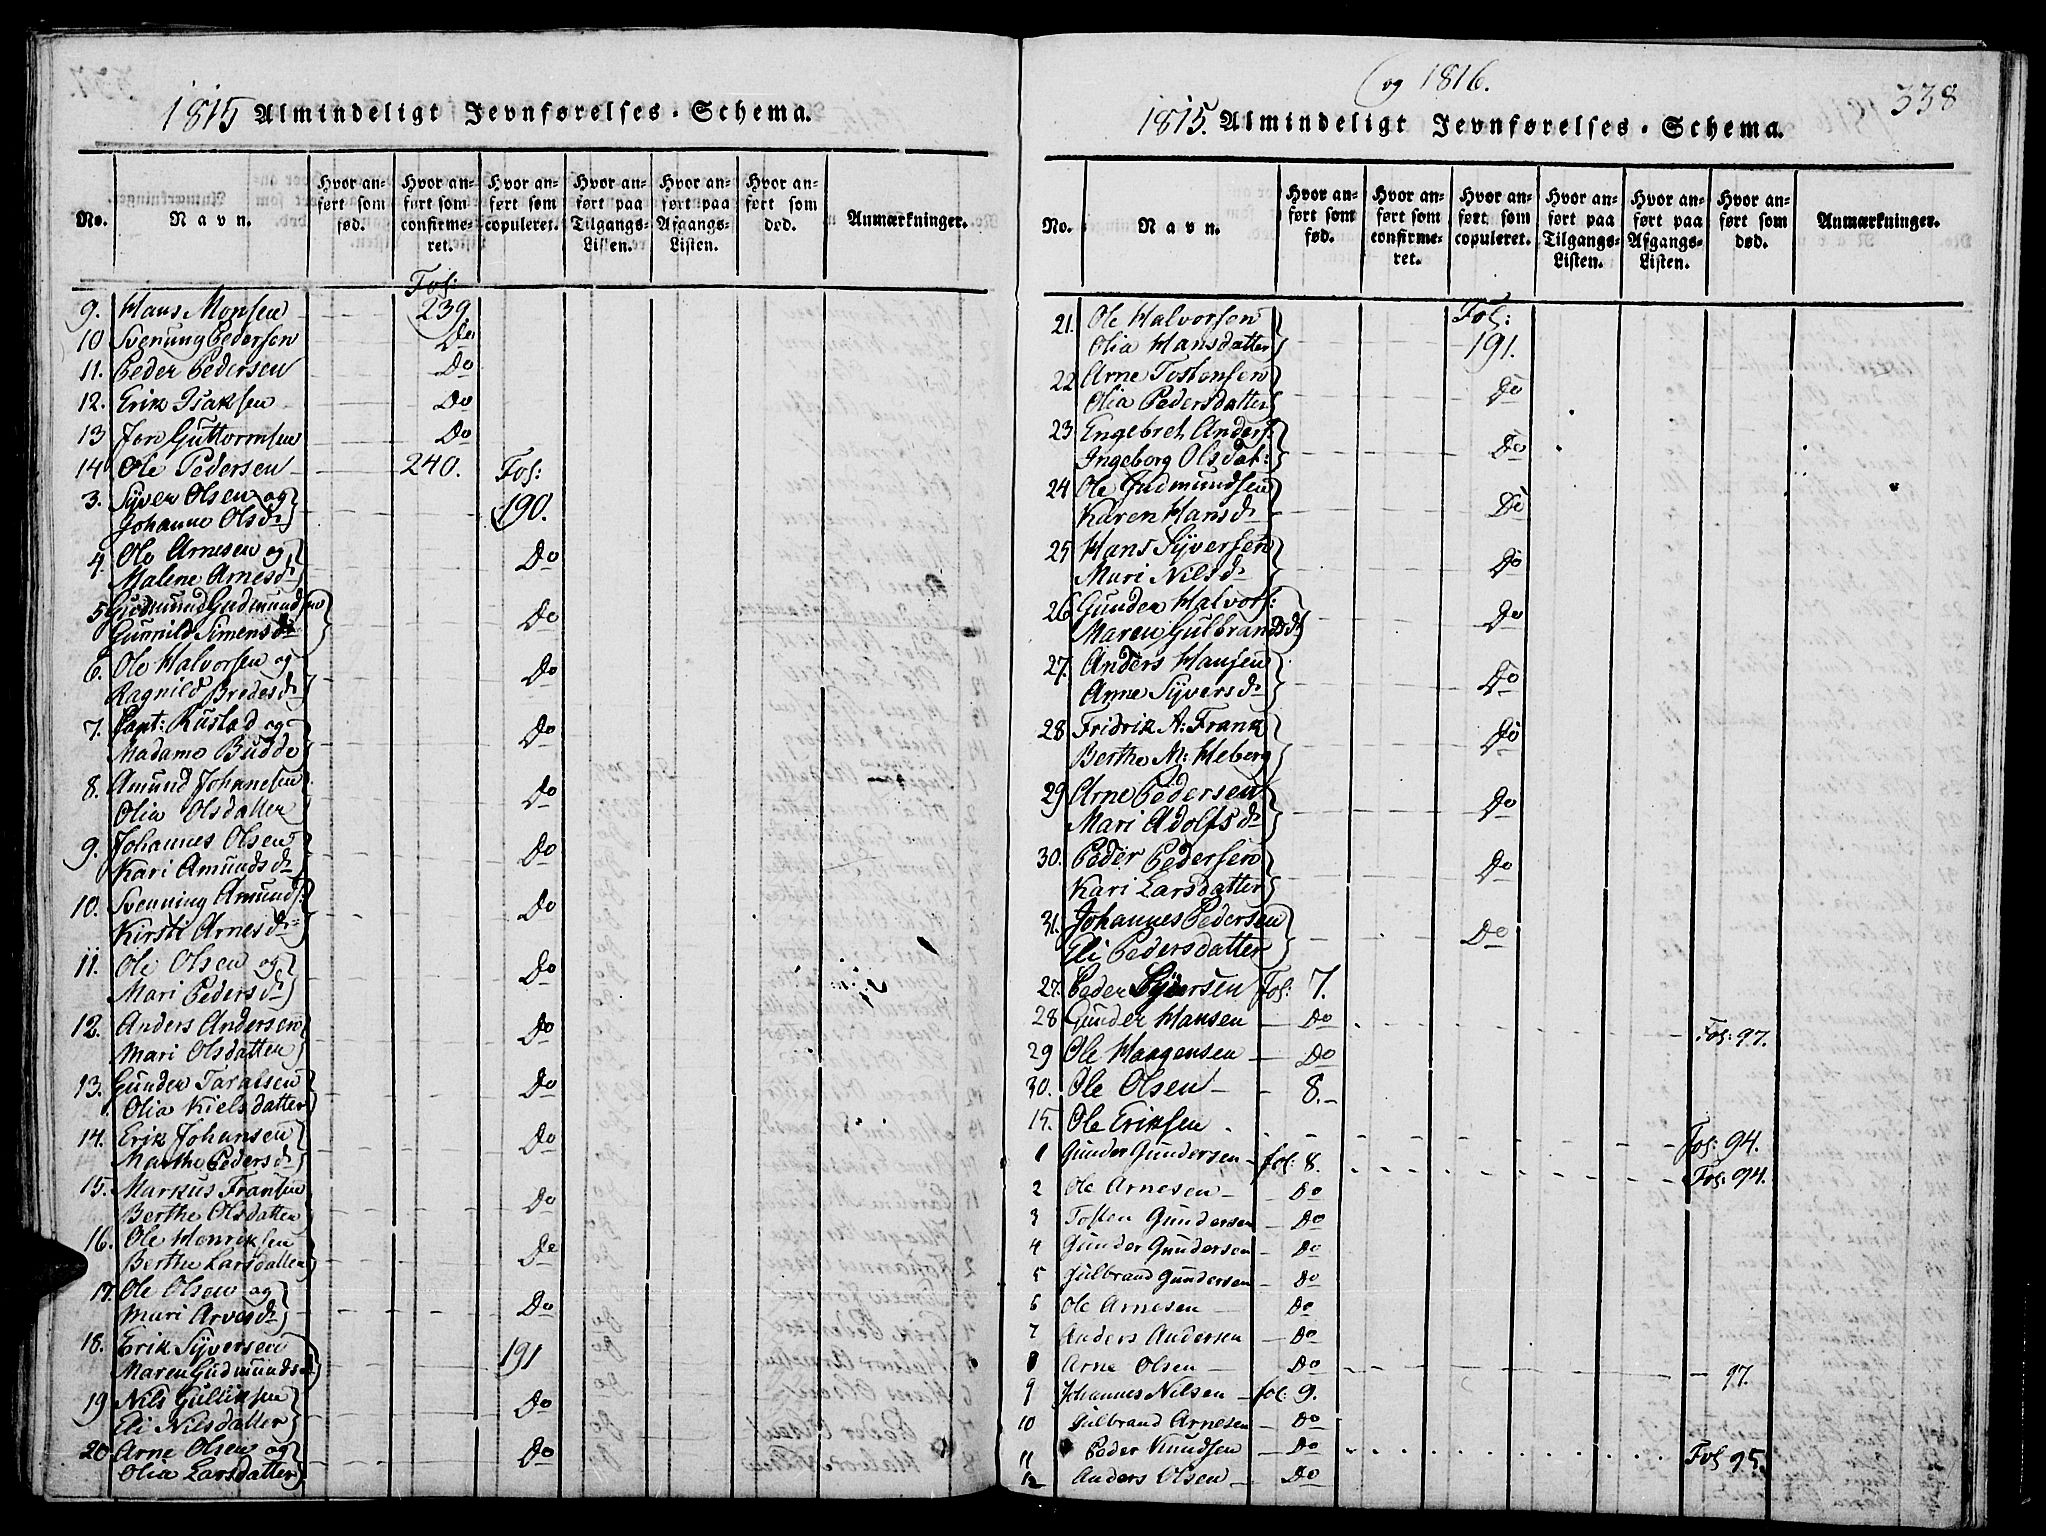 1815 Almindeligt Jevnførelses-Schema.
No. Navn. Hvor anført som fød. Hvor anført som confirmeret. Hvor anført som copuleret. Hvor anført paa Tilgangs-Listen. Hvor anført paa Afgangs-Listen. Hvor anført som død. Anmærkninger.
Fol:
9. Hans Monsen 239
10 Svenung Pedersen Do
11. Peder Pedersen Do
12. Erik Isaksen Do
13 Jon Guttormsen Do
14 Ole Pedersen 240. Fol:
3. Syver Olsen og
Johanne Olsdr 190.
4. Ole Arnesen og
Malene Arnesdr Do
5 Gudmund Gudmundsen
Gunnild Simensdr Do
6. Ole Halvorsen og
Ragnild Bredesdr Do
7. Capt: Kustad og
Madame Budde Do
8. Amund Johanesen
Olia Olsdatter Do
9. Johannes Olsen
Kari Amundsdr Do
10. Svenning Amunds:
Kirsti Arnesdr Do
11. Ole Olsen og
Mari Pedersdr Do
12. Anders Andersen
Mari Olsdatter Do
13. Gunder Taralsen
Olia Kielsdatter Do
14. Erik Johansen
Marthe Pedersdr Do
15. Markus Fransen
Berthe Olsdatter Do
16. Ole Henriksen
Berthe Larsdatter Do
17. Ole Olsen og
Mari Arvesdr Do
18. Erik Syversen
Maren Gudmundsd 191
19 Nils Gulliksen
Eli Nilsdatter Do
20. Arne Olsen og
Olia Larsdatter Do
og 1816.
338
1815. Almindeligt Jevnførelses-Schema.
No. Navn. Hvor anført som fød. Hvor anført som confirmeret. Hvor anført som copuleret. Hvor anført paa Tilgangs-Listen. Hvor anført paa Afgangs-Listen. Hvor anført som død. Anmærkninger.
21. Ole Halvorsen Fol:
Olia Hansdatter 191.
22 Arne Tostensen
Olia Pedersdatter Do
23. Engebret Anders:
Ingeborg Olsdat: Do
24 Ole Gudmundsen
Karen Hansdr Do
25 Hans Syversen
Mari Nilsdr Do
26 Gunder Halvors:
Maren Gulbrandsdr Do
27. Anders Hansen
Anne Syversdr Do
28 Fridrik A: Frank
Berthe M: Heberg Do
29 Arne Pedersen
Mari Adolfsdr Do
30. Peder Pedersen
Kari Larsdatter Do
31. Johannes Pedersen
Eli Pedersdatter Do
27. Peder Syversen Fol: 7.
28 Gunder Hansen Do Fol: 97.
29 Ole Haagensen Do
30. Ole Olsen 8.
15. Ole Eriksen Fol: 94.
1 Gunder Gundersen fol: 8. Fol: 94.
2 Ole Arnesen Do
3 Tosten Gundersen Do
4 Gunder Gundersen Do
5 Gulbrand Gundersen Do
6 Ole Arnesen Do
7 Anders Andersen Do
8 Arne Olsen Do 97.
9 Johannes Nilsen fol: 9.
10 Gulbrand Arnesen Do
11 Peder Knudsen Do Fol 95.
12 Anders Olsen Do